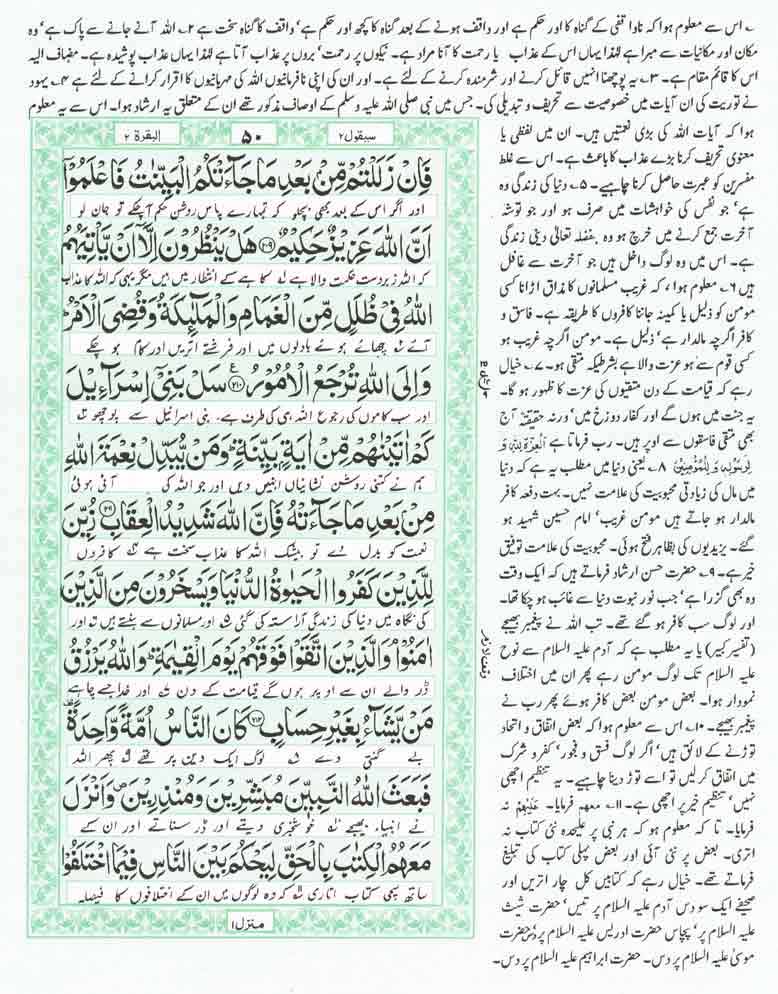 ۱۔ اس سے معلوم ہوا کہ ناواقفی کے گناہ کا اور حکم ہے اور واقف ہونے کے بعد گناہ کا کچھ اور حکم ہے، واقف کا گناہ سخت ہے ۲۔ اللہ آنے جانے سے پاک ہے، وہ
مکان اور مکانیات سے مبرا ہے لہٰذا یہاں اس کے عذاب یا رحمت کا آنا مراد ہے۔ نیکوں پر رحمت، بروں پر عذاب آتا ہے لہٰذا یہاں عذاب پوشیدہ ہے۔ مضاف الیہ
اس کا قائم مقام ہے۔ ۳۔ یہ پوچھنا انہیں قائل کرنے اور شرمندہ کرنے کے لئے ہے۔ اور ان کی اپنی نافرمانیوں اللہ کی مہربانیوں کا اقرار کرانے کے لئے ہے ۴۔ یہود
نے توریت کی ان آیات میں خصوصیت سے تحریف و تبدیلی کی۔ جس میں نبی صلی اللہ علیہ وسلم کے اوصاف مذکور تھے ان کے متعلق یہ ارشاد ہوا۔ اس سے یہ معلوم
ہوا کہ آیات اللہ کی بڑی نعمتیں ہیں۔ ان میں لفظی یا
معنوی تحریف کرنا بڑے عذاب کا باعث ہے۔ اس سے غلط
مفسرین کو عبرت حاصل کرنا چاہیے۔ ۵۔ دنیا کی زندگی وہ
ہے، جو نفس کی خواہشات میں صرف ہو اور جو توشہ
آخرت جمع کرنے میں خرچ ہو وہ بفضلہ تعالیٰ دینی زندگی
ہے۔ اس میں وہ لوگ داخل ہیں جو آخرت سے غافل
ہیں ۶۔ معلوم ہوا، کہ غریب مسلمانوں کا مذاق اڑانا کسی
مومن کو ذلیل یا کمینہ جاننا کافروں کا طریقہ ہے۔ فاسق و
کافر اگرچہ مالدار ہے، ذلیل ہے۔ مومن اگرچہ غریب ہو
کسی قوم سے ہو عزت والا ہے بشرطیکہ متقی ہو۔ ۷۔ خیال
رہے کہ قیامت کے دن متقیوں کی عزت کا ظہور ہو گا۔
یہ جنت میں ہوں گے اور کفار دوزخ میں، ورنہ حقیقتہ آج
بھی متقی فاسقوں سے اوپر ہیں۔ رب فرماتا ہے العِزَّةُ لِلّٰهِ وَ
لِرَسُوْلِهٖ وَ لِلْمُؤْمِنِيْنَ ۸۔ یعنی دنیا میں مطلب یہ ہے کہ دنیا
میں مال کی زیادتی محبوبیت کی علامت نہیں۔ بہت دفعہ کافر
مالدار ہو جاتے ہیں مومن غریب، امام حسین شہید ہو
گئے۔ یزیدیوں کی بظاہر فتح ہوئی۔ محبوبیت کی علامت توفیق
خیر ہے۔ ۹۔ حضرت حسن ارشاد فرماتے ہیں کہ ایک وقت
وہ بھی گزرا ہے، جب نور نبوت دنیا سے غائب ہو چکا تھا۔
اور لوگ سب کافر ہو گئے تھے۔ تب اللہ نے پیغمبر بھیجے
(تفسیر کبیر) یا یہ مطلب ہے کہ آدم علیہ السلام سے نوح
علیہ السلام تک لوگ مومن رہے پھر ان میں اختلاف
نمودار ہوا۔ بعض مومن بعض کافر ہوئے پھر رب نے
پیغمبر بھیجے۔ ۱۰۔ اس سے معلوم ہوا کہ بعض اتفاق و اتحاد
توڑنے کے لائق ہیں، اگر لوگ فسق و فجور، کفر و شرک
میں اتفاق کرلیں تو اسے توڑ دینا چاہیے۔ یہ تنظیم اچھی
نہیں، تنظیم خیر پر اچھی ہے۔ ۱۱۔ معہم فرمایا۔ عَلَيْهِمْ نہ
فرمایا۔ تا کہ معلوم ہو کہ ہر نبی پر علیحدہ نئی کتاب نہ
اتری۔ بعض پر نئی آئی اور بعض پہلی کتاب کی تبلیغ
فرماتے تھے۔ خیال رہے کہ کتابیں کل چار اتریں اور
صحیفے ایک سو دس آدم علیہ السلام پر تیس، حضرت شیث
علیہ السلام پر، پچاس حضرت ادریس علیہ السلام پر دس، حضرت
موسیٰ علیہ السلام پر دس۔ حضرت ابراہیم علیہ السلام پر دس۔
سیقول ۲ ۵۰ البقرة ۲
فَاِنْ زَلَلْتُمْ مِّنْۢ بَعْدِ مَا جَآءَتْكُمُ الْبَيِّنٰتُ فَاعْلَمُوْۤا
اور اگر اس کے بعد بھی بچلو کہ تمہارے پاس روشن حکم آچکے تو جان لو
اَنَّ اللّٰهَ عَزِيْزٌ حَكِيْمٌ ۲۰۹ هَلْ يَنْظُرُوْنَ اِلَّاۤ اَنْ يَّاْتِيَهُمُ
کہ اللہ زبردست حکمت والا ہے کاہے کے انتظار میں ہیں مگر یہی کہ اللہ کا عذاب
اللّٰهُ فِيْ ظُلَلٍ مِّنَ الْغَمَامِ وَالْمَلٰٓئِكَةُ وَقُضِيَ الْاَمْرُ
آئے چھائے ہوئے بادلوں میں اور فرشتے اتریں اور کام ہو چکے
وَاِلَى اللّٰهِ تُرْجَعُ الْاُمُوْرُ ۲۱۰ سَلْ بَنِيْۤ اِسْرَآءِيْلَ
اور سب کاموں کی رجوع اللہ ہی کی طرف ہے۔ بنی اسرائیل سے پوچھو
كَمْ اٰتَيْنٰهُمْ مِّنْ اٰيَةٍۭ بَيِّنَةٍ وَمَنْ يُّبَدِّلْ نِعْمَةَ اللّٰهِ
ہم نے کتنی روشن نشانیاں انہیں دیں اور جو اللہ کی آئی ہوئی
مِنْۢ بَعْدِ مَا جَآءَتْهُ فَاِنَّ اللّٰهَ شَدِيْدُ الْعِقَابِ ۲۱۱ زُيِّنَ
نعمت کو بدل دے تو بیشک اللہ کا عذاب سخت ہے کافروں
لِلَّذِيْنَ كَفَرُوا الْحَيٰوةُ الدُّنْيَا وَيَسْخَرُوْنَ مِنَ الَّذِيْنَ
کی نگاہ میں دنیا کی زندگی آراستہ کی گئی اور مسلمانوں سے ہنستے ہیں اور
اٰمَنُوْا وَالَّذِيْنَ اتَّقَوْا فَوْقَهُمْ يَوْمَ الْقِيٰمَةِ وَاللّٰهُ يَرْزُقُ
ڈر والے ان سے اوپر ہوں گے قیامت کے دن اور خدا جسے چاہے
مَنْ يَّشَآءُ بِغَيْرِ حِسَابٍ ۲۱۲ كَانَ النَّاسُ اُمَّةً وَّاحِدَةً
بے گنتی دے لوگ ایک دین پر تھے پھر اللہ
فَبَعَثَ اللّٰهُ النَّبِيّٖنَ مُبَشِّرِيْنَ وَمُنْذِرِيْنَ وَاَنْزَلَ
نے انبیاء بھیجے خوشخبری دیتے اور ڈر سناتے اور ان کے
مَعَهُمُ الْكِتٰبَ بِالْحَقِّ لِيَحْكُمَ بَيْنَ النَّاسِ فِيْمَا اخْتَلَفُوْا
ساتھ سچی کتاب اتاری کہ وہ لوگوں میں ان کے اختلافوں کا فیصلہ
منزل ۱